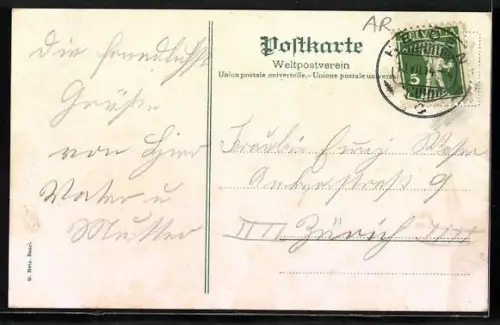 AR
Postkarte
Weltpostverein
Union postale universelle. - Unione postale univers
HELVETIA
5
Die freundlichste
Grüße
von Hier
Vater u
Mutter
Fräulein
9
III Zürich III
G. Metz, Basel.